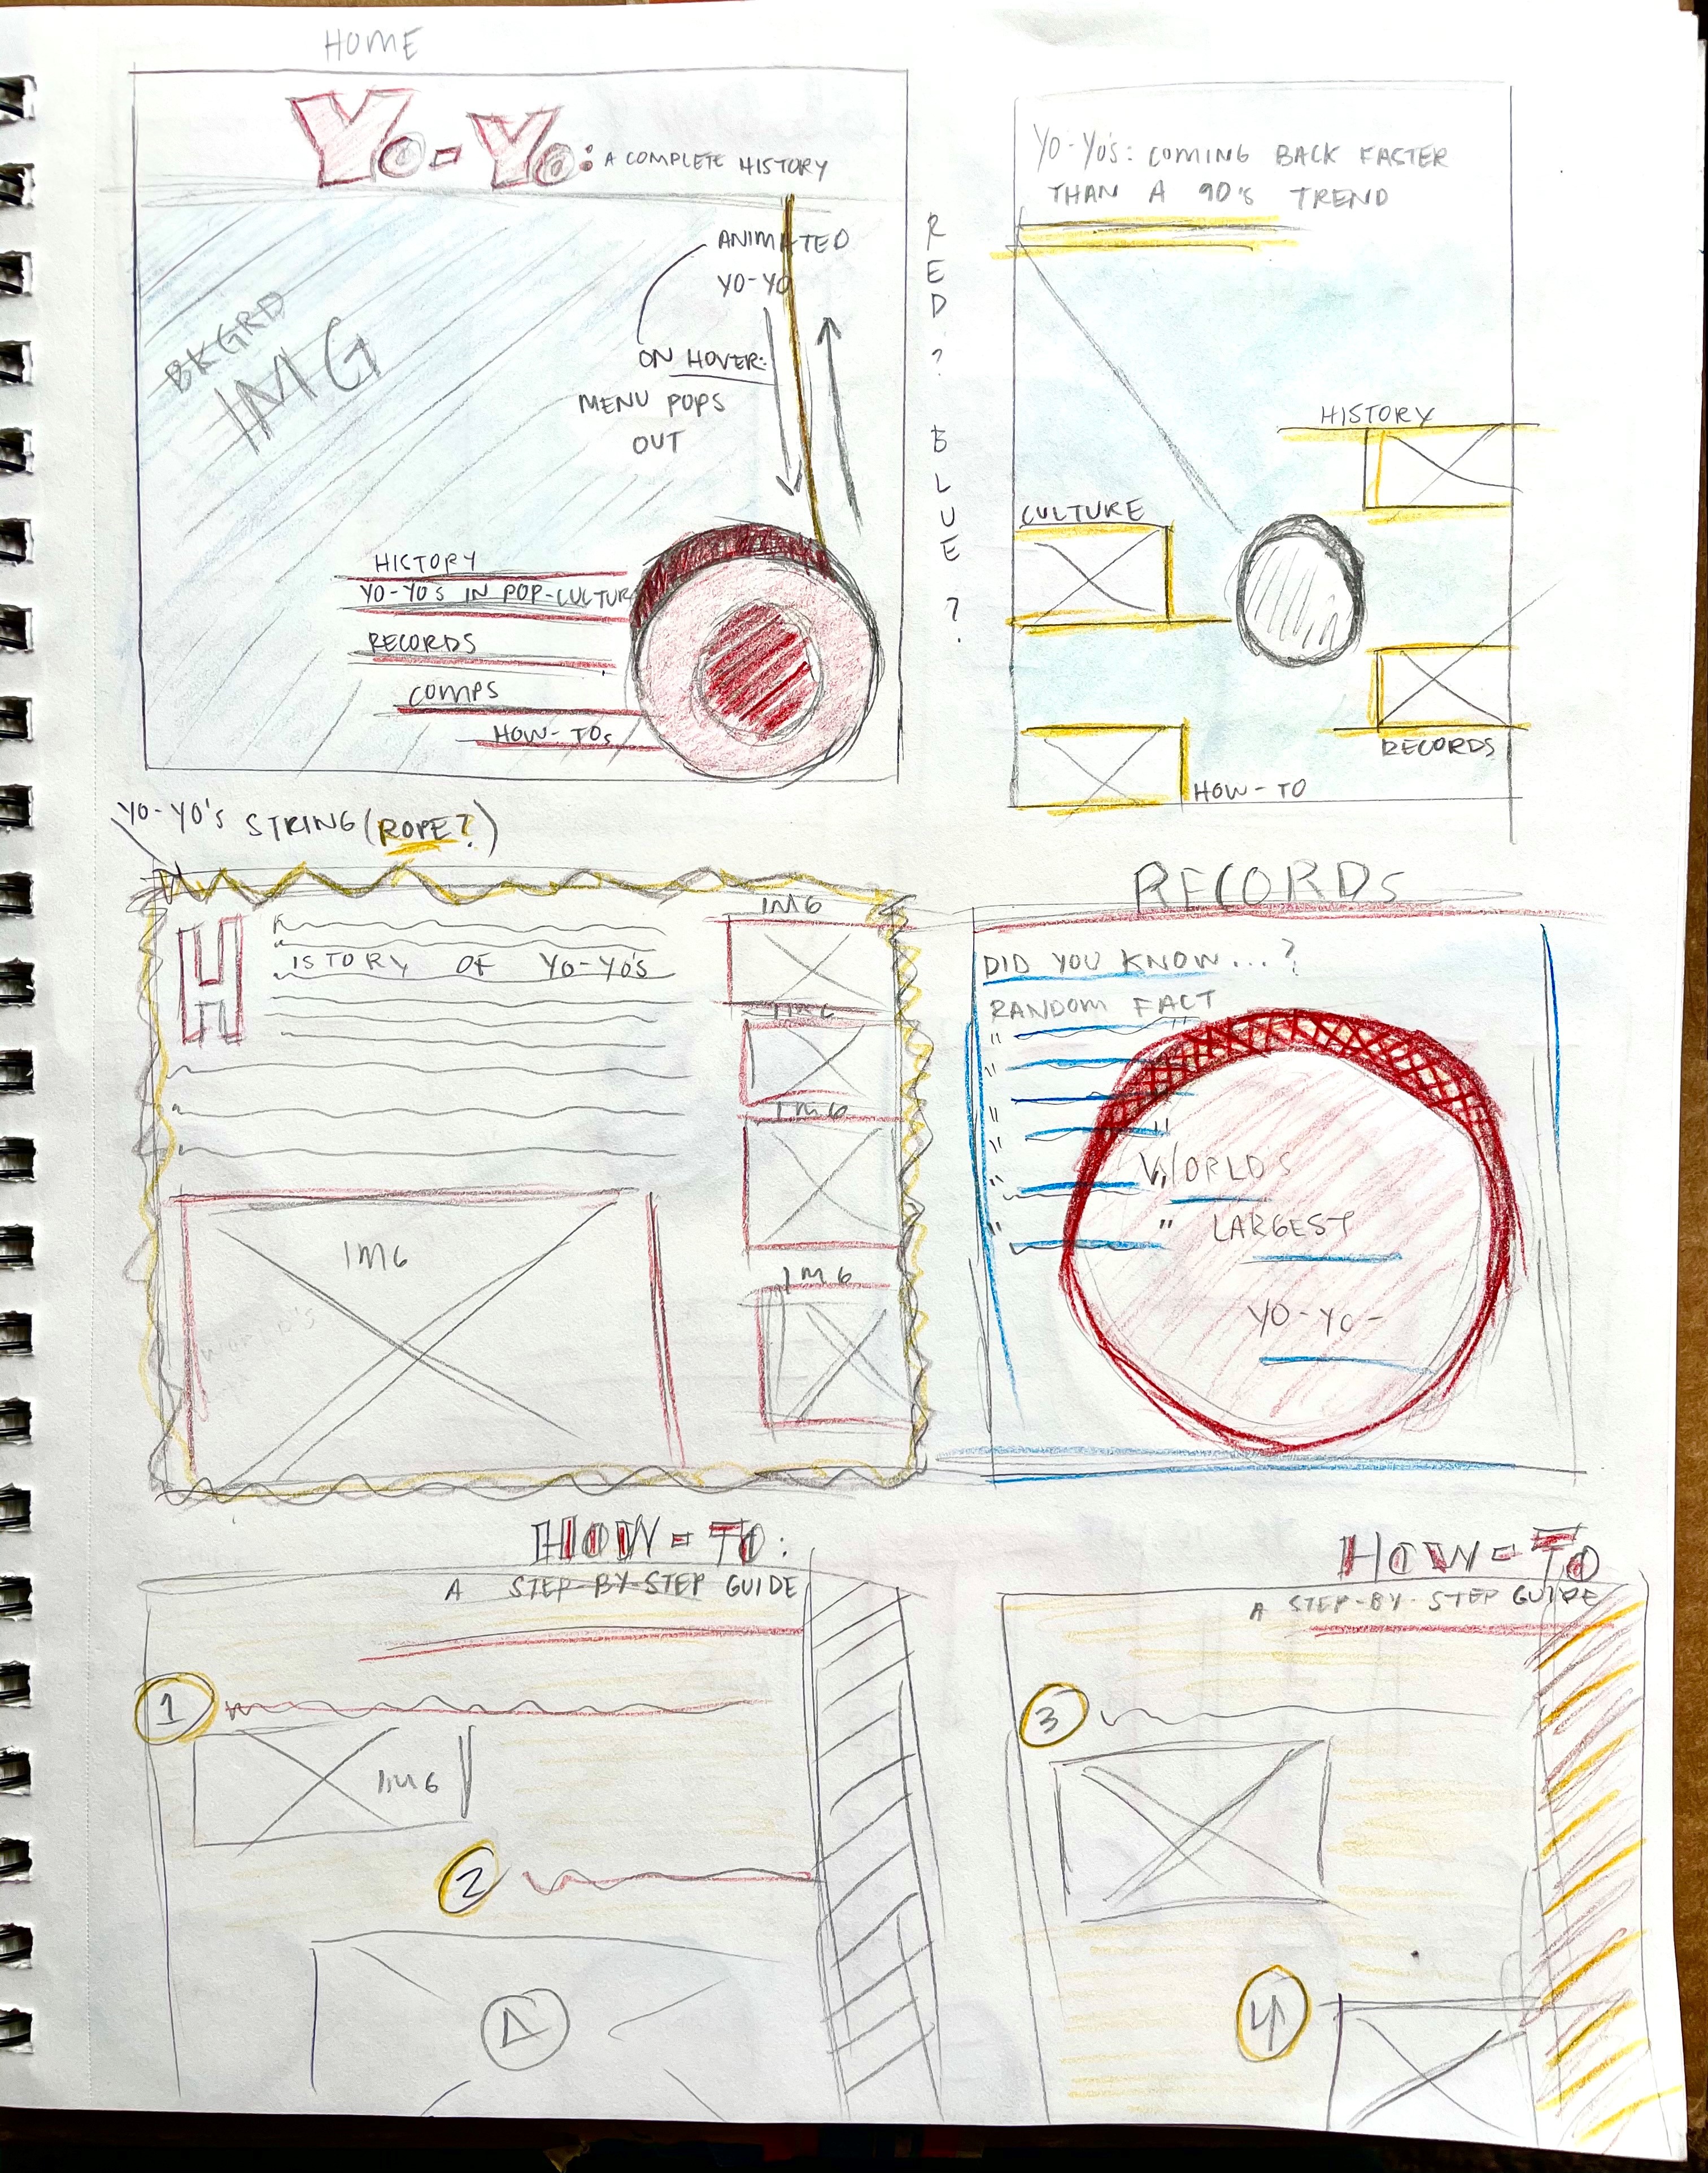 HOME
Yo-Yo: A COMPLETE HISTORY
ANIMATED
YO-YO
ON HOVER:
MENU POPS
OUT
BKGRD
IMG
HISTORY
YO-YO'S IN POP-CULTUR
RECORDS
COMPS
HOW-TOs
RED? BLUE?
YO-YO'S: COMING BACK FASTER
THAN A 90'S TREND
HISTORY
CULTURE
RECORDS
HOW-TO
YO-YO'S STRING (ROPE?)
H
ISTORY OF YO-YO'S
IMG
IMG
IMG
IMG
IMG
RECORDS
DID YOU KNOW...?
RANDOM FACT
"
"
"
"
"
"
"
"
WORLDS
LARGEST
YO-YO-
HOW-TO:
A STEP-BY-STEP GUIDE
1
IMG
2
HOW-TO
A STEP-BY-STEP GUIDE
3
4